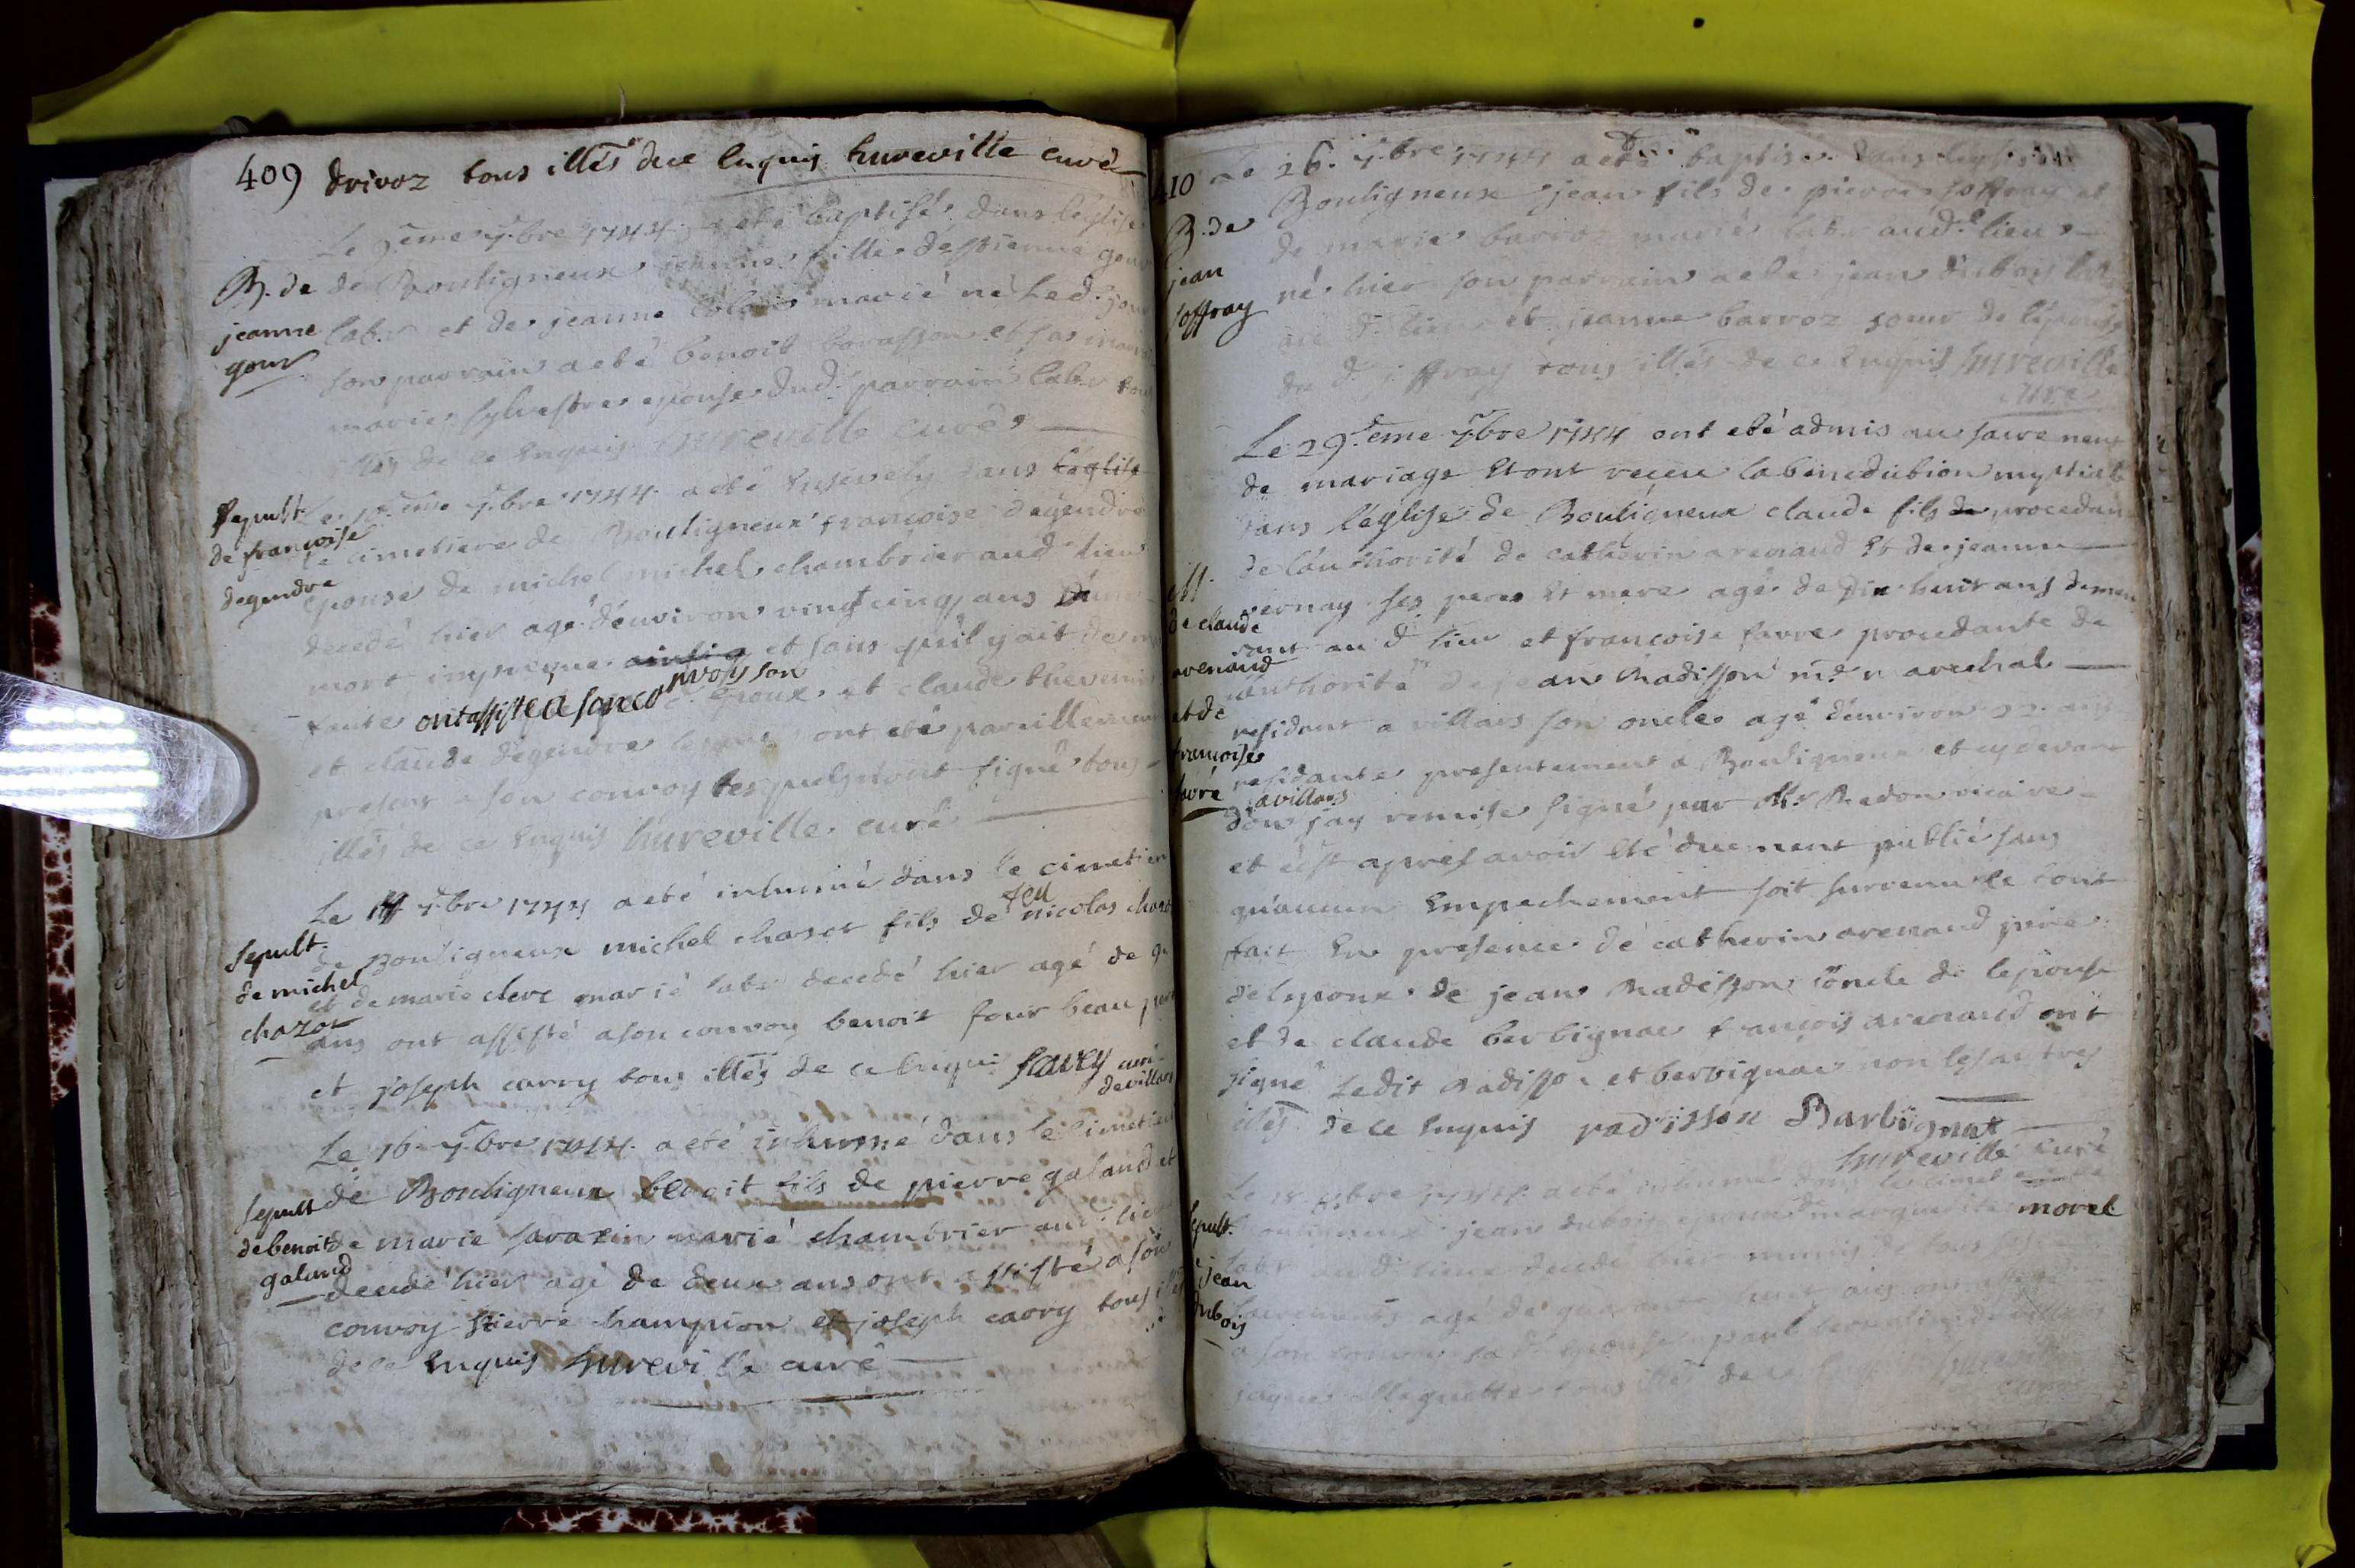 409 drivoz tous illés de ce Enquis hureville curé
Le 9.eme 7.bre 1744 a eté baptisé dans l'eglise
B. de
jeanne
gour
de Bouligneux jeanne fille d'estienne gour
lab.r et de jeanne marié né led. jour
son parrain a eté benoit borasson et sa mar
marie sylvestre epouse dud. parrain lab.r tous
illés de ce Enquis hureville curé
Sepult.
de francoise
degendre
7.bre 1744 a eté Ensevely dans l'eglise
le cimetiere de Bouligneux francoise degendre
epouse de michel michel chambrier aud. lieu
decedé hier agé d'environ vingt cinq ans
mort et sans qu'il y ait de
suite ont assisté a son convoy son
d. Epoux et claude thevenin
et claude degendre ont eté pareillement
presens a son convoy lesquels n'ont signé tous
illés de ce Enquis hureville curé
Le 14 7.bre 1744 a eté inhumé dans le cimetier
Sepult.
de michel
chazot
de Bouligneux michel chazot fils de feu nicolas chazot
et de marie clerc marié lab.r decedé hier agé de
ans ont assisté a son convoy benoit four beau pere
et joseph carry tous illés de ce Enquis favey curé
de villars
Le 16. 7.bre 1744. a eté inhumé dans le cimetier
Sepult
de benoit
galand
de Bouligneux benoit fils de pierre galand et
de marie sarazin marié chambrier aud. lieu
decedé hier agé de deux ans ont assisté a son
convoy pierre champion et joseph carry tous illés
de ce Enquis hureville curé
410 Le 26. 7.bre 1744 a eté baptisé dans l'eglise de
B. de
jean
joffray
Bouligneux jean fils de pierre joffray et
de marie barroz marié lab.r aud. lieu
né hier son parrain a eté jean dubois lab.
au d. lieu et jeanne barroz soeur de l'epouse
du d. joffray tous illés de ce Enquis hureville
curé
Le 29.eme 7.bre 1744 ont eté admis au sacrement
de mariage Et ont receu la benediction nuptiale
dans l'église de Bouligneux claude fils de procedant
de l'authorité de catherin arenaud Et de jeanne
M.
de claude
arenaud
et de
francoise
favre
ses pere Et mere agé de dix huit ans demeu
rant au d. lieu et francoise favre procedante de
l'authorité de jean Radisson m.d marechal
residant a villars son oncle agé d'environ 22. ans
residante presentement a Bouligneux et cy devant
a villars
dont j'ay remise signé par Mr Redon vicaire
et c'est apres avoir eté duement publié sans
qu'aucun Empechement soit survenu le tout
fait En presence de catherin arenaud pere
de l'epoux de jean Radisson oncle de l'epouse
et de claude berbignac francois arenaud ont
signé Ledit Radisson et berbignac non les autres
illés de ce Enquis radisson Barbignat
hureville curé
Le 18. 8bre 1744. a eté inhumé dans le cimetiere
Sepult.
jean
dubois
de Bouligneux jean dubois epoux de marguerite morel
lab.r au d. lieu decedé hier munis de tous ses
sacrements agé de quarante huit ans ont assisté
a son convoy sa d. epouse
tous illés de ce Enquis hureville
curé